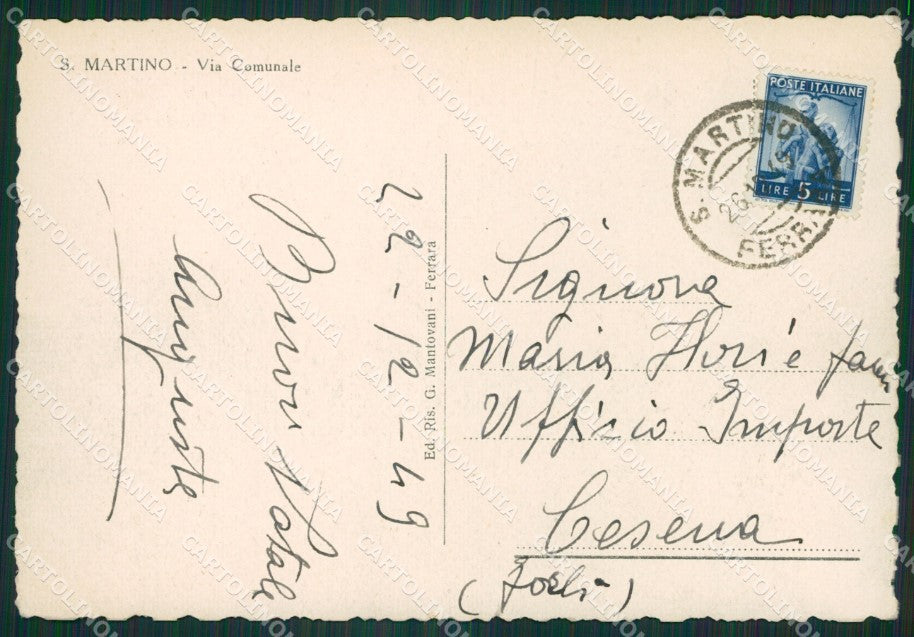 S. MARTINO - Via Comunale
POSTE ITALIANE
LIRE 5 LIRE
S. MARTINO
FERRARA
22-12-49
Buon Natale
Ed. Ris. G. Mantovani - Ferrara
Signora
Maria
Ufficio Imposte
Cesena
(Forlì)
CARTOLINOMANIA